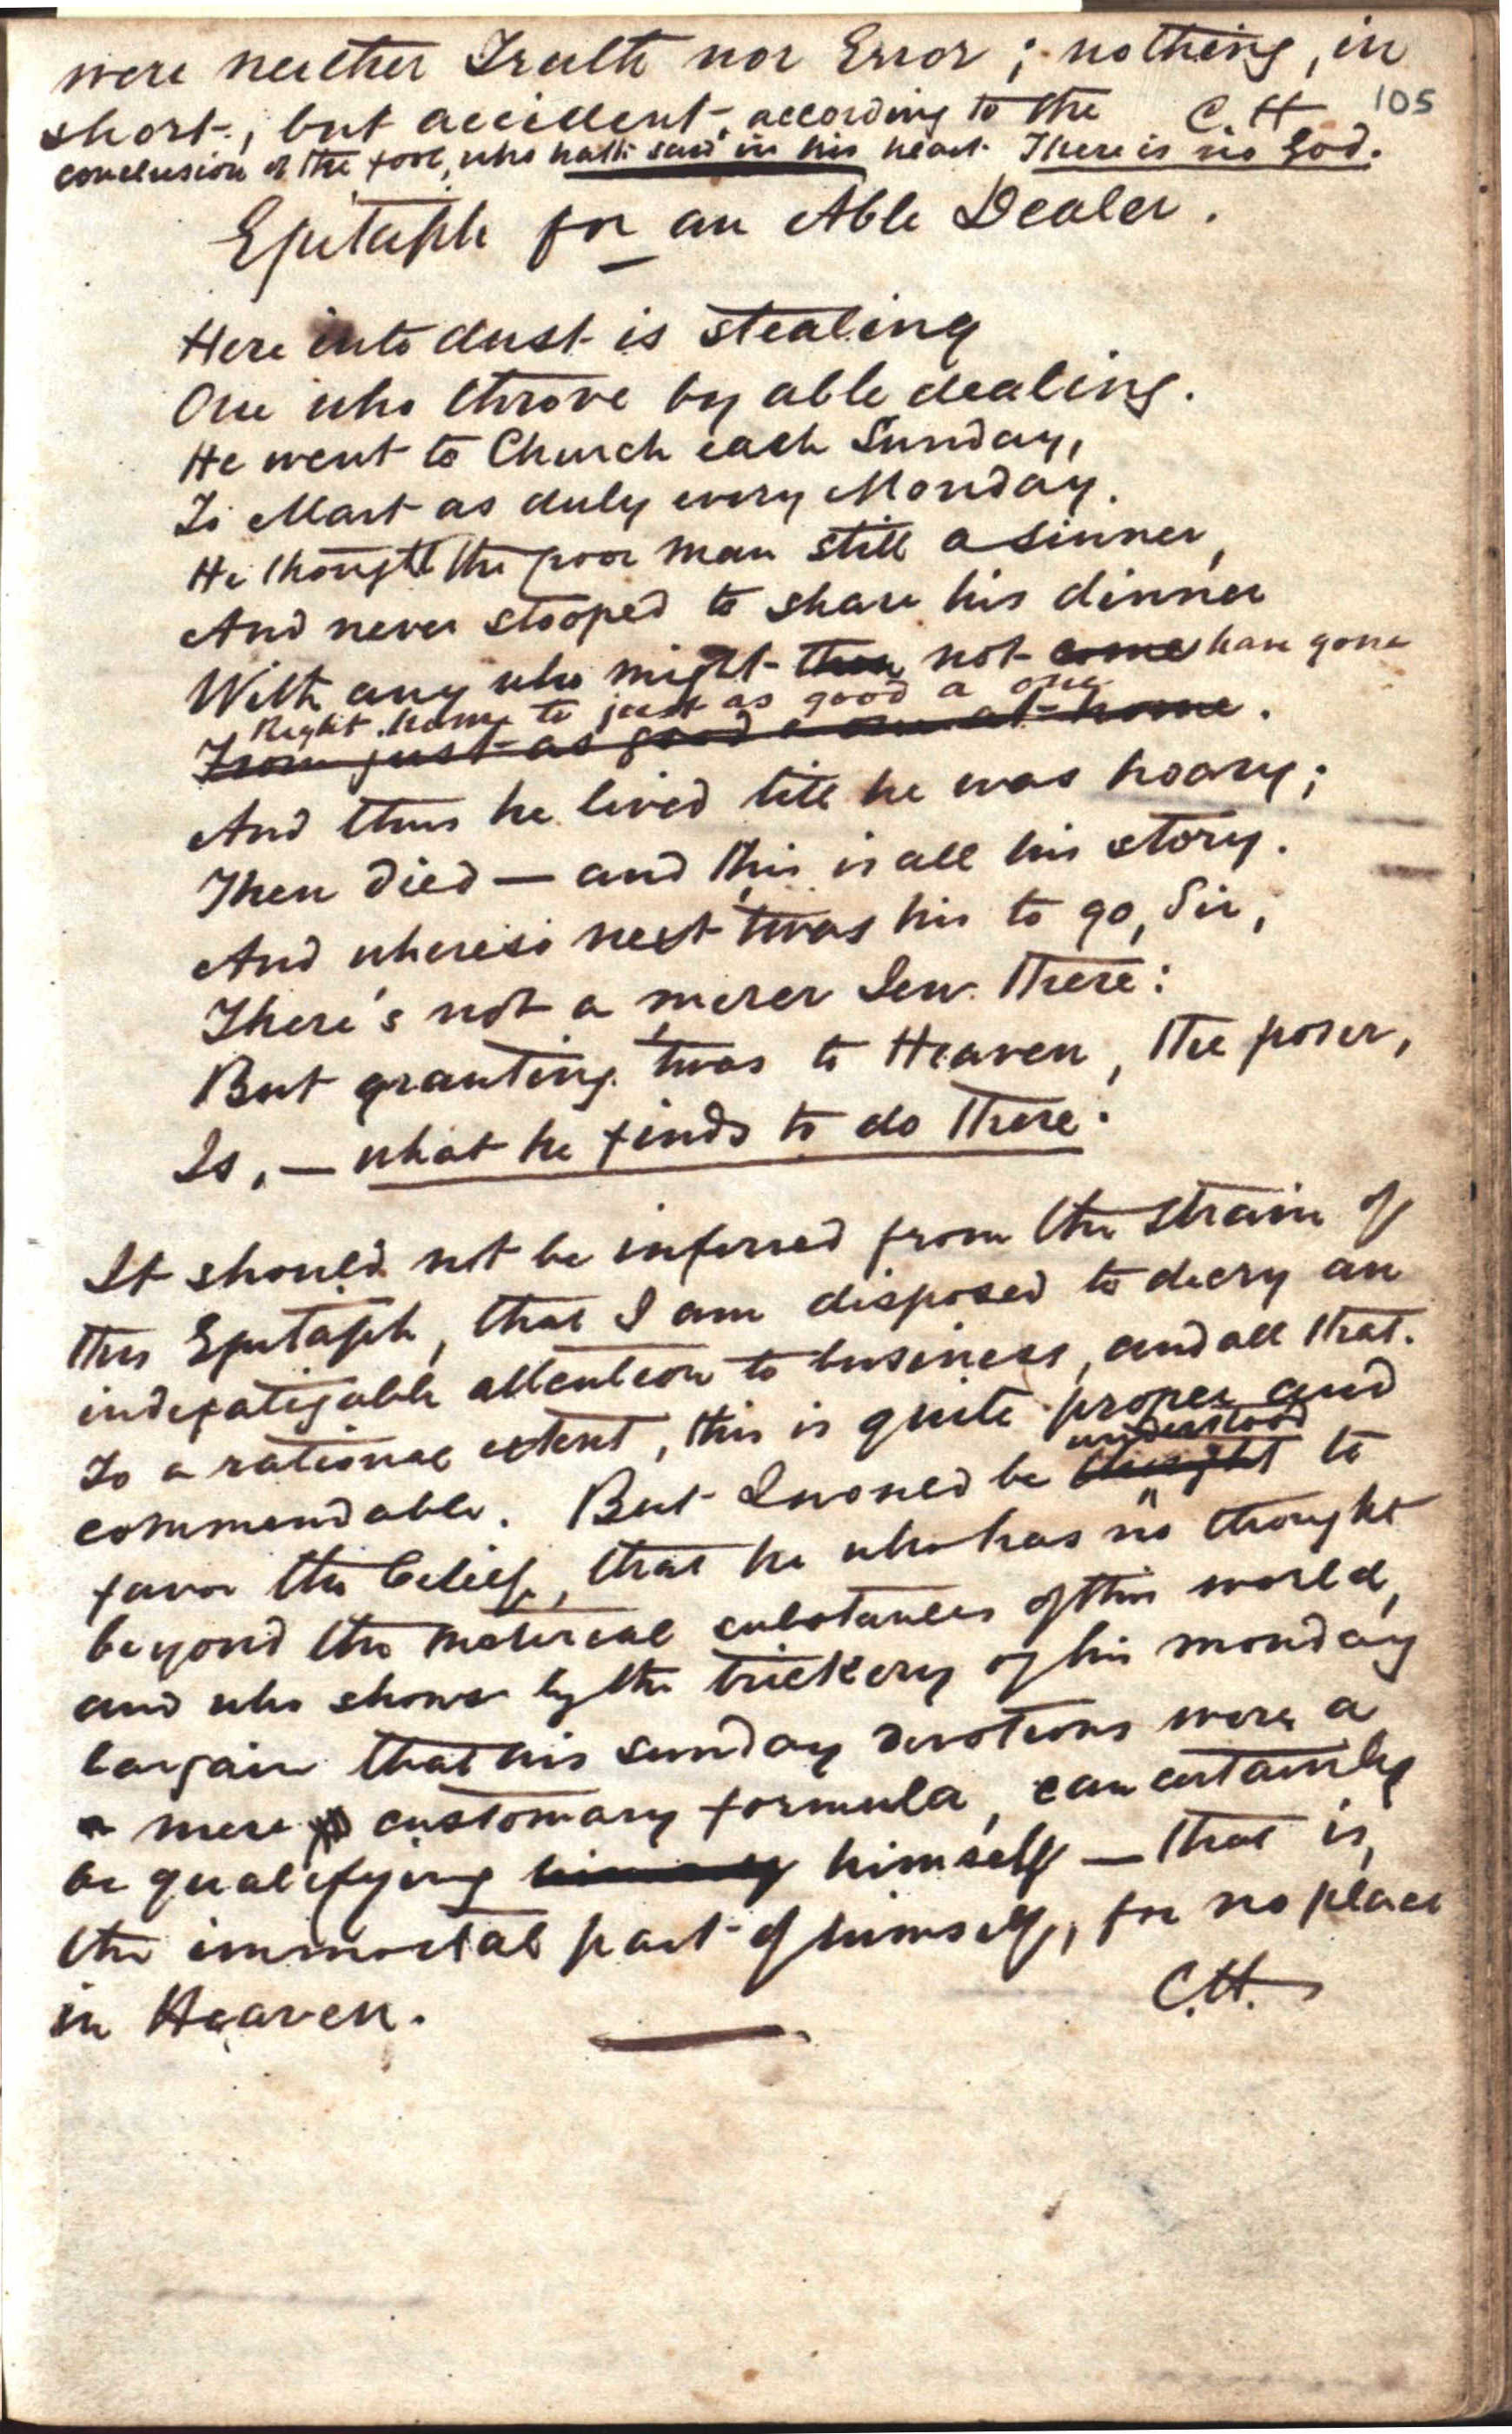 were neither Truth nor Error; nothing, in
short, but accident, according to the C.H 105
conclusion of the fool, who hath said in his heart There is no God.
Epitaph for an Able Dealer.
Here into dust is stealing
One who throve by able dealing.
He went to Church each Sunday,
To Mart as duly every Monday.
He thought the poor man still a sinner,
And never stooped to share his dinner
With any who might then not come have gone
Right home to just as good a one
From just as good a one at home.
And thus he lived till he was hoary;
Then died — and this is all his story.
And whereso next 'twas his to go, Sir,
There's not a merer Jew there:
But granting 'twas to Heaven, the poser,
Is, — what he finds to do there.
It should not be inferred from the strain of
this Epitaph, that I am disposed to decry an
indefatigable attention to business, and all that.
To a rational extent, this is quite proper and
understood
commendable. But I would be thought to
favor the belief, that he who has no thought
beyond the material substances of this world,
and who shows by the trickery of his monday
bargain that his sunday devotions were a
a mere customary formula, can certainly
be qualifying himself — that is,
the immortal part of himself, for no place
in Heaven. C.H.